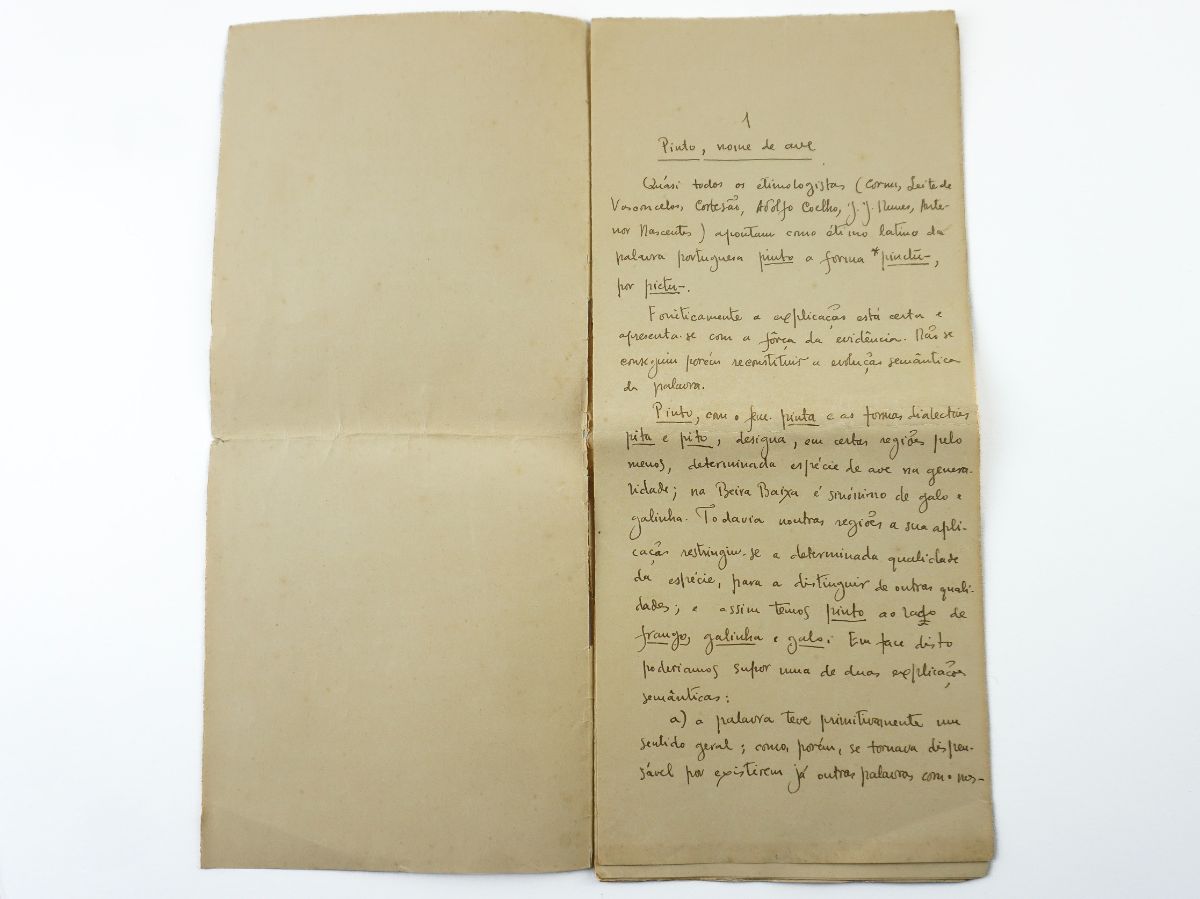 1
Pinto, nome de ave
Quási todos os etimologistas (Cornu, Leite de
Vasconcelos, Cortesão, Adolfo Coelho, J. J. Nunes, Ante-
nor Nascentes) apontam como étimo latino da
palavra portuguesa pinto a forma *pinctu-,
por pictu-.
Fonèticamente a explicação está certa e
apresenta-se com a fôrça da evidência. Não se
conseguiu porém reconstituir a evolução semântica
da palavra.
Pinto, com o fem. pinta e as formas dialectais
pita e pito, designa, em certas regiões pelo
menos, determinada espécie de ave na genera-
lidade; na Beira Baixa é sinónimo de galo e
galinha. Todavia noutras regiões a sua apli-
cação restringiu-se a determinada qualidade
da espécie, para a distinguir de outras quali-
dades; e assim temos pinto ao lado de
frango, galinha e galo. Em face disto
poderíamos supor uma de duas explicações
semânticas:
a) a palavra teve primitivamente um
sentido geral; como, porém, se tornava dispen-
sável por existirem já outras palavras com o mes-